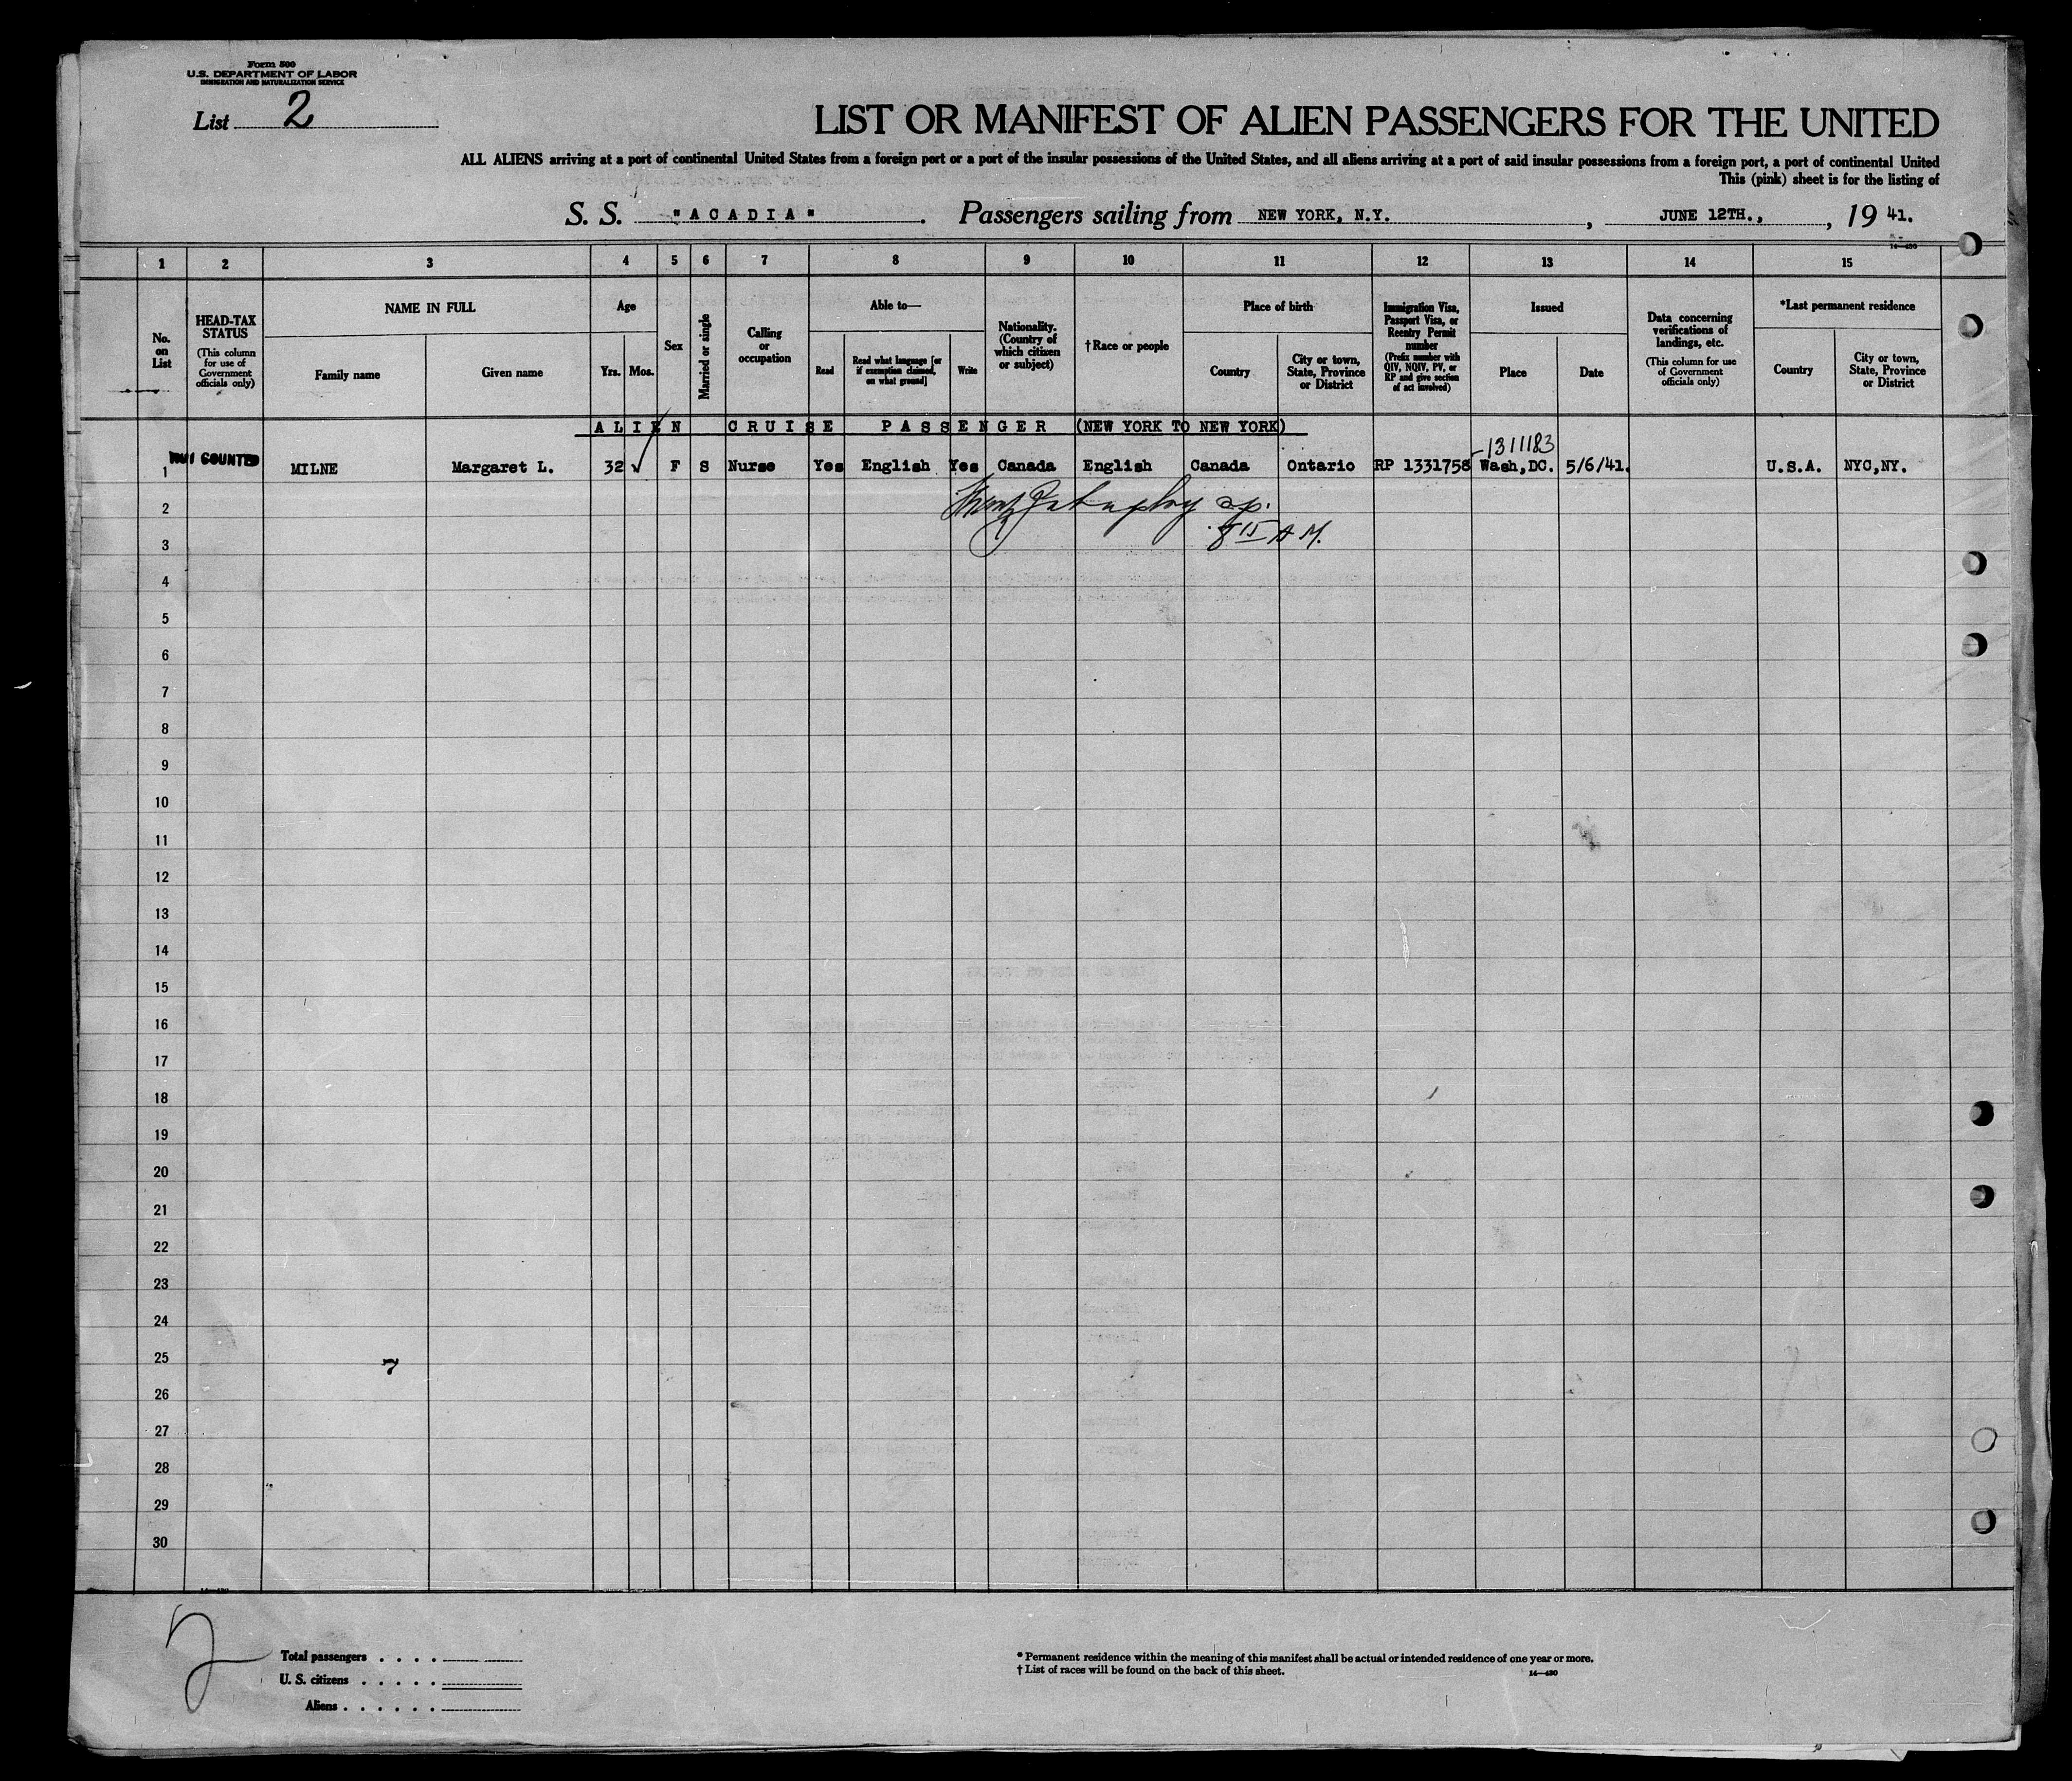 Form 500
U.S. DEPARTMENT OF LABOR
IMMIGRATION AND NATURALIZATION SERVICE
List 2
LIST OR MANIFEST OF ALIEN PASSENGERS FOR THE UNITED
ALL ALIENS arriving at a port of continental United States from a foreign port or a port of the insular possessions of the United States, and all aliens arriving at a port of said insular possessions from a foreign port, a port of continental United
This (pink) sheet is for the listing of
S. S. "ACADIA" . Passengers sailing from NEW YORK, N.Y. , JUNE 12TH., , 19 41.
14—430
1 2 3 4 5 6 7 8 9 10 11 12 13 14 15
No. on List
HEAD-TAX STATUS
(This column for use of Government officials only)
NAME IN FULL
Family name
Given name
Age
Yrs. Mos.
Sex
Married or single
Calling or occupation
Able to—
Read
Read what language [or if exemption claimed, on what ground]
Write
Nationality. (Country of which citizen or subject)
†Race or people
Place of birth
Country
City or town, State, Province or District
Immigration Visa, Passport Visa, or Reentry Permit number
(Prefix number with QIV, NQIV, PV, or RP and give section of act involved)
Issued
Place
Date
Data concerning verifications of landings, etc.
(This column for use of Government officials only)
*Last permanent residence
Country
City or town, State, Province or District
ALIEN CRUISE PASSENGER (NEW YORK TO NEW YORK)
1311183
1 COUNTED MILNE Margaret L. 32 ✓ F S Nurse Yes English Yes Canada English Canada Ontario RP 1331758 Wash,DC. 5/6/41. U.S.A. NYC,NY.
2
3 8 15 A M.
4
5
6
7
8
9
10
11
12
13
14
15
16
17
18
19
20
21
22
23
24
25 7
26
27
28
29
30
2
Total passengers . . . .
U. S. citizens . . . . .
Aliens . . . . . .
* Permanent residence within the meaning of this manifest shall be actual or intended residence of one year or more.
† List of races will be found on the back of this sheet.
14—430